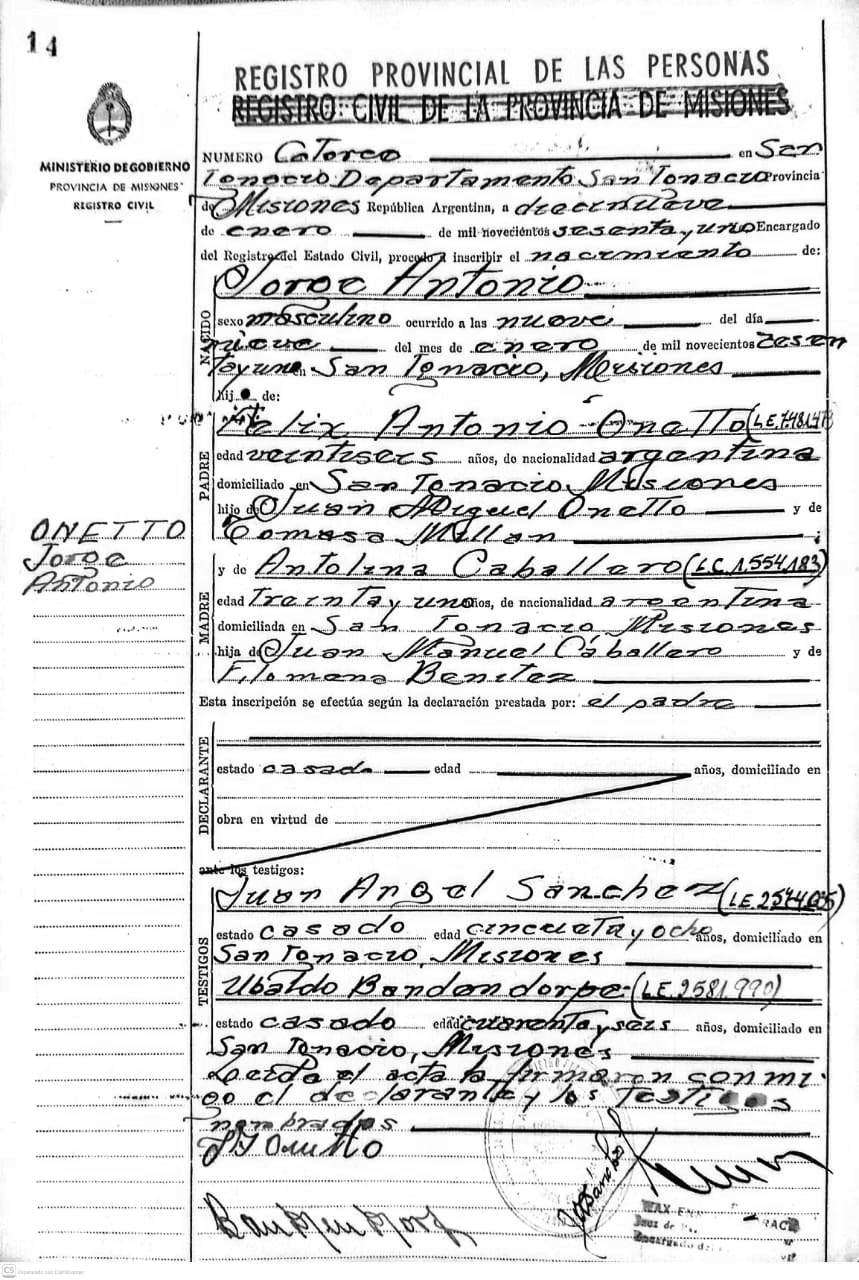 14
MINISTERIO DE GOBIERNO
PROVINCIA DE MISIONES
REGISTRO CIVIL
REGISTRO PROVINCIAL DE LAS PERSONAS
REGISTRO CIVIL DE LA PROVINCIA DE MISIONES
NUMERO Catorce en San
Ignacio Departamento San Ignacio Provincia
de Misiones República Argentina, a diecinueve
de enero de mil novecientos sesenta y uno Encargado
del Registro del Estado Civil, procedo a inscribir el nacimiento de:
NACIDO
Jorge Antonio
sexo masculino ocurrido a las nueve del día
nueve del mes de enero de mil novecientos sesen
ta y uno en San Ignacio, Misiones
hijo de:
PADRE
Felix Antonio Onetto (L.E.
edad veintiseis años, de nacionalidad argentina
domiciliado en San Ignacio, Misiones
hijo de Juan Miguel Onetto y de
Tomasa Millan ;
ONETTO
Jorge
Antonio
MADRE
y de Antolina Caballero (L.C. 1.554.183)
edad treinta y uno años, de nacionalidad argentina
domiciliada en San Ignacio Misiones
hija de Juan Manuel Caballero y de
Filomena Benitez
Esta inscripción se efectúa según la declaración prestada por: el padre
DECLARANTE
estado casado edad años, domiciliado en
obra en virtud de
ante los testigos:
TESTIGOS
Juan Angel Sanchez (L.E.
estado casado edad cincuenta y ocho años, domiciliado en
San Ignacio, Misiones
Ubaldo Bandendorpe (L.E. 2581.990)
estado casado edad cuarenta y seis años, domiciliado en
San Ignacio, Misiones
Leida el acta la firmaron conmi-
go el declarante y los Testigos
nombrados
Onetto
CS Escaneado con CamScanner